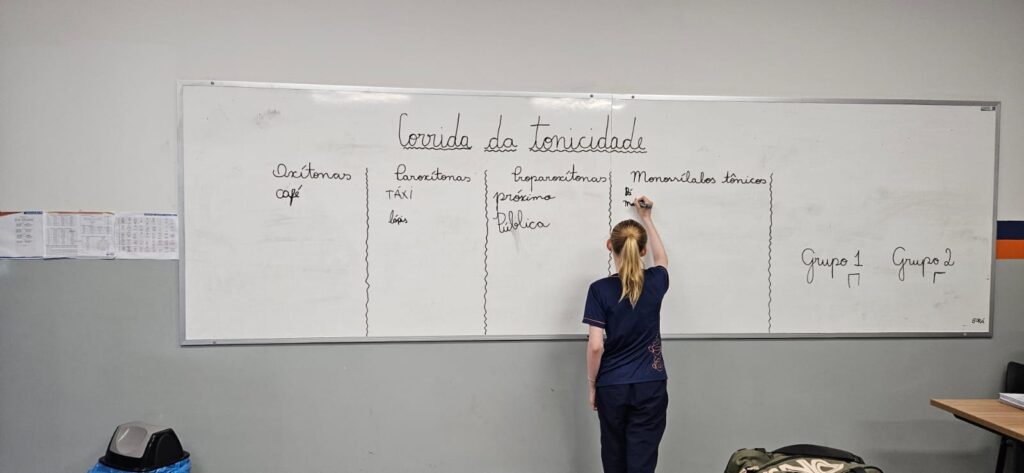 Corrida da tonicidade
Oxítonas
café
Paroxítonas
TÁXI
lápis
Proparoxítonas
próximo
Pública
Monossílabos tônicos
Grupo 1
Grupo 2